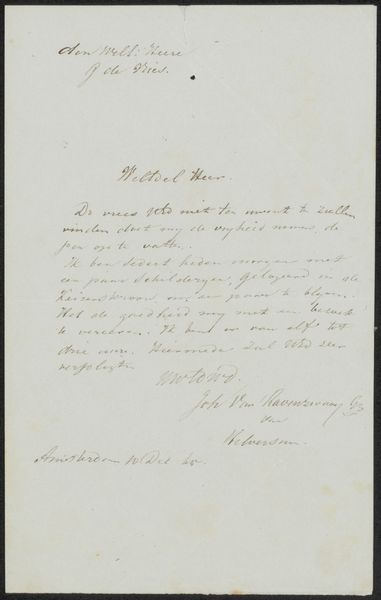 den WelEd. Heere
de Vries.
WelEdel Heer.
De vrees UEd niet ten uwent te zullen
vinden doet mij de vrijheid nemen, de
pen op te vatten.
Ik ben sedert heden morgen met
een paar Schilderyen, gelogeerd in de
Keizerskroon, om een paar te blyven.
Heb de goedheid my met een bezoek
te vereeren. Ik ben er van elf tot
drie ure. Hiermede zal UEd zeer
verpligten
UwEdDnd.
Joh Van Ravenzwaay Gz
van
Hilversum.
Amsterdam 10 Dec